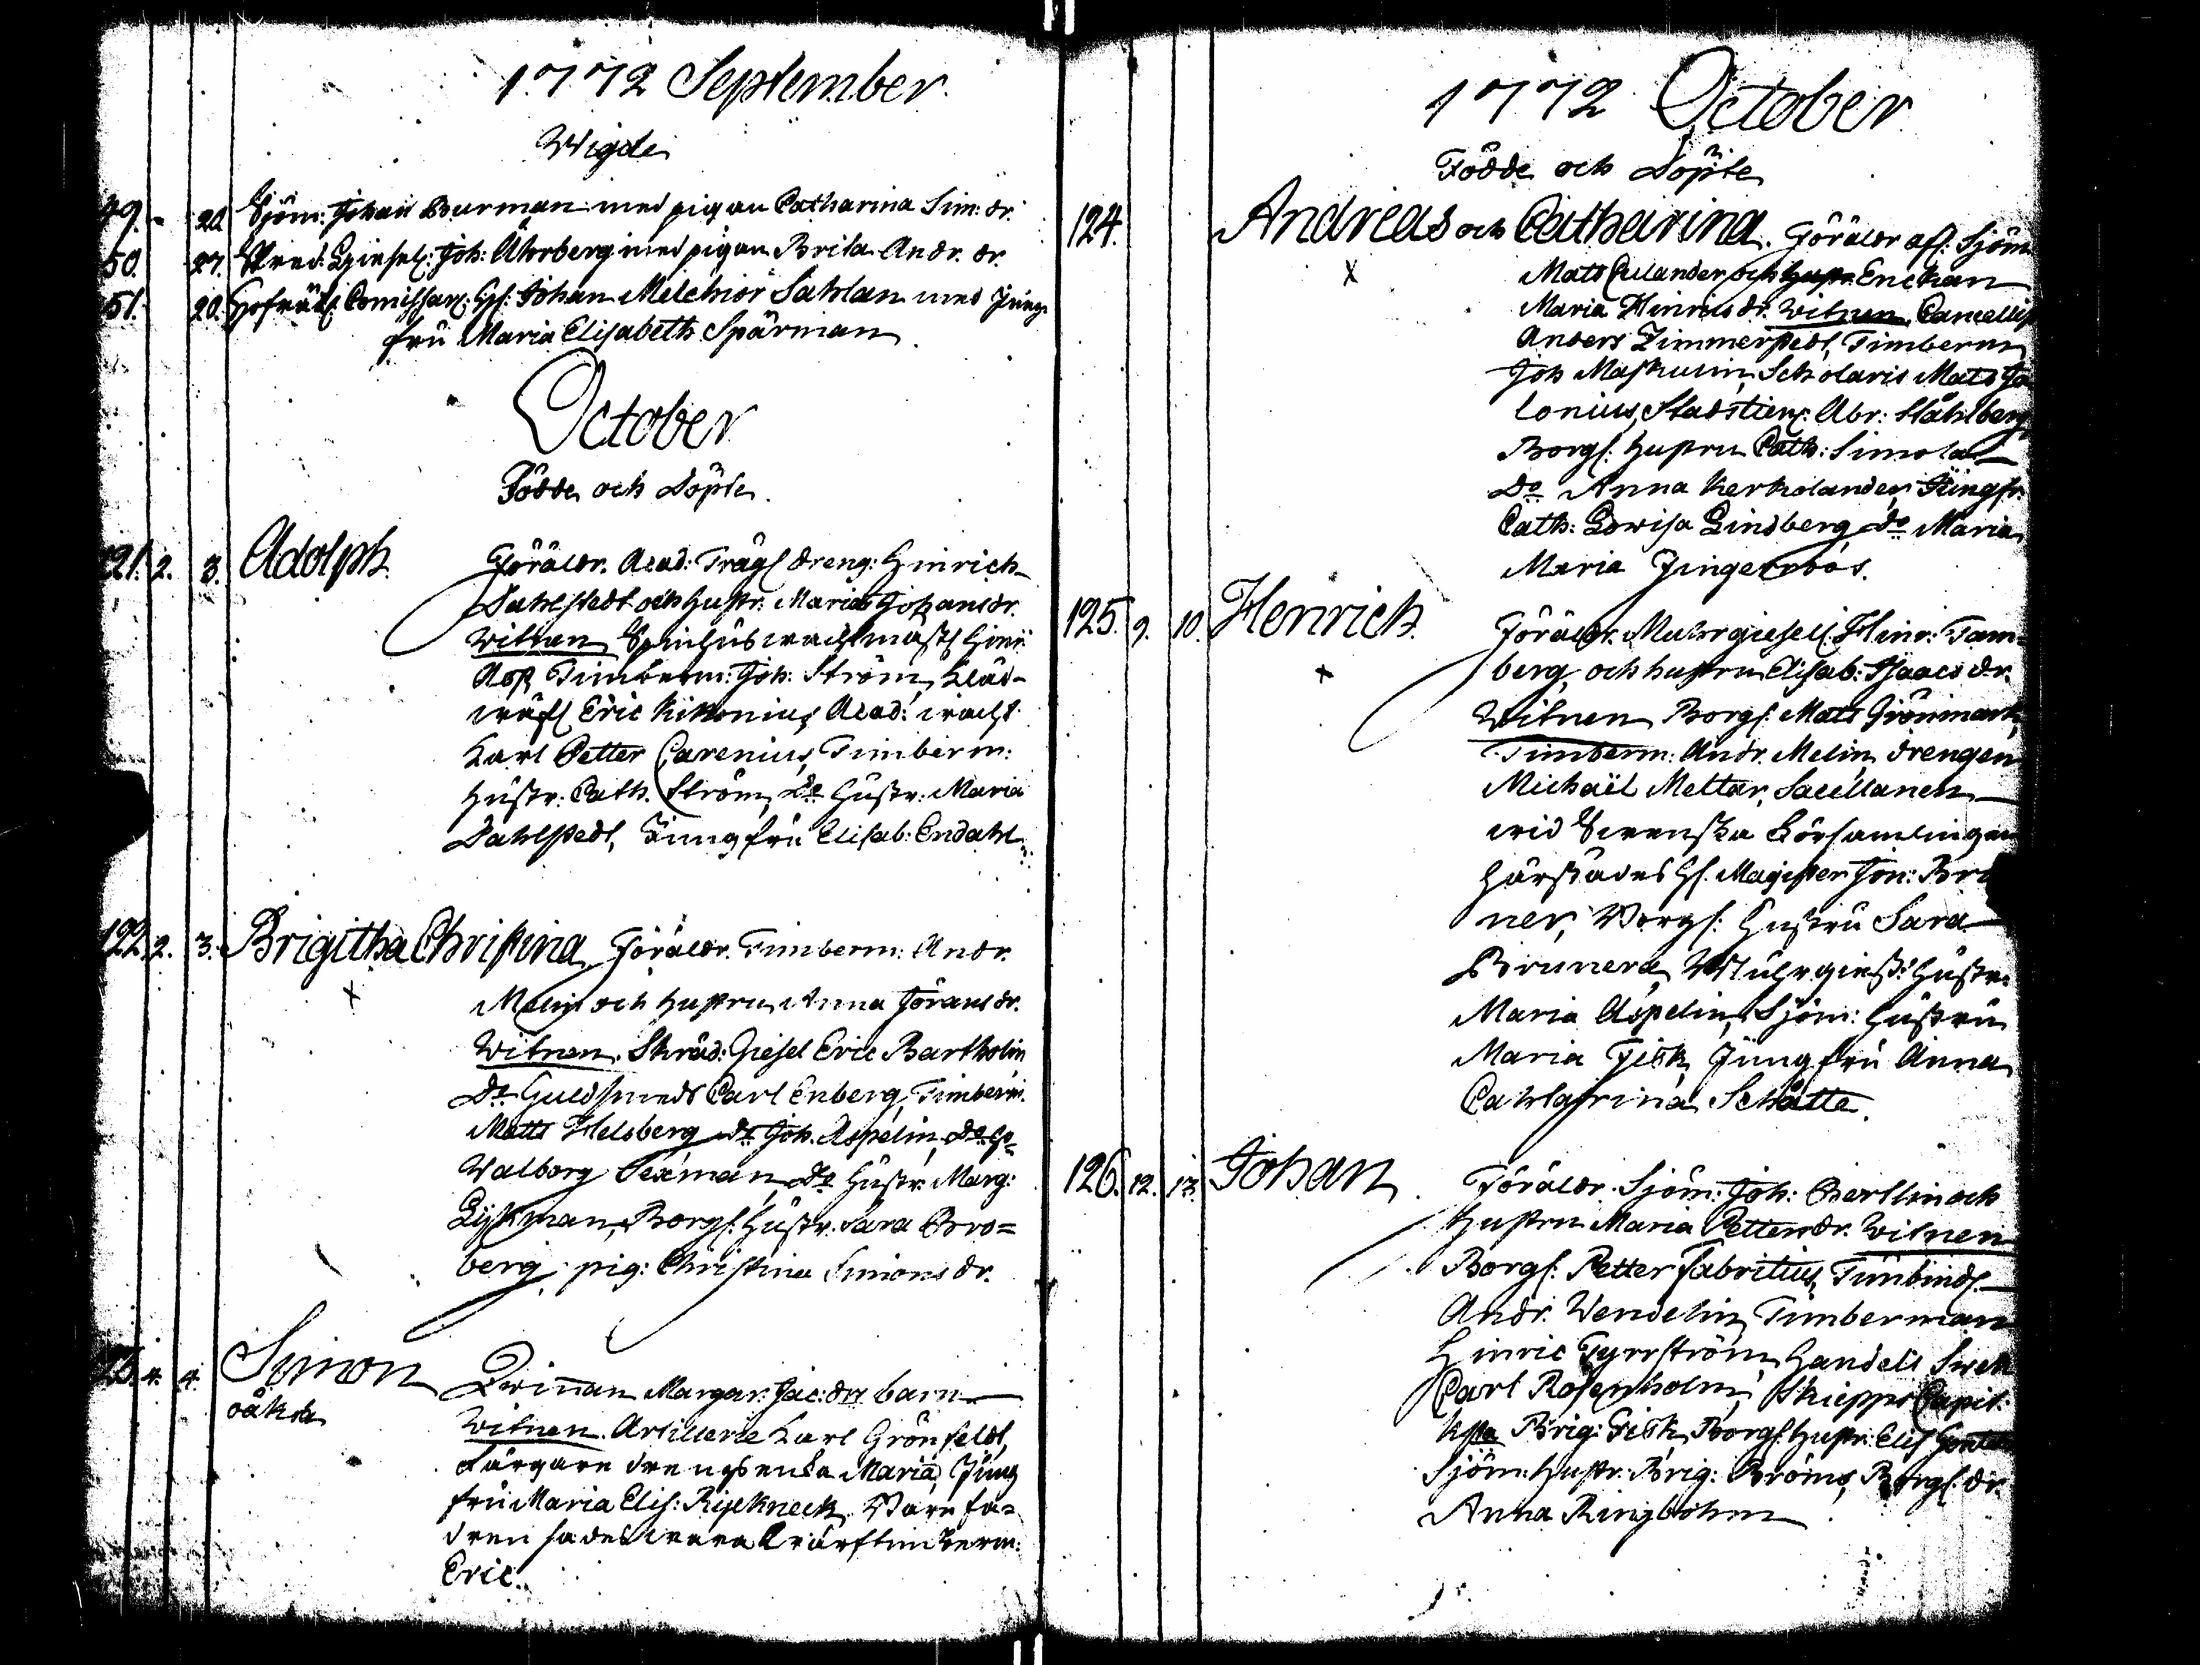 1772 September
Wigde
49. - 20. Sjöm: Johan Burman med pigan Catharina Sim: dr.
50. 27. Joh: Åhrberg med pigan Brita Andr. dr.
51. 20. Hofrätts Comissar: H: Johan Melchior Sahlan med Jung-
fru Maria Elisabeth Spårman
October
Födde och Döpte.
121. 2. 3. Adolph. Föräldr. Acad: Trägs dreng: Hinrich
Dahlstedt och Hustr. Maria Johansdr.
Witnen Spinhus wachtmäst Hinr:
Asp Timberm: Joh: Ström, Kläd-
Eric Kikonius, Acad: wacht
Karl Petter Carenius, Timberm:
Hustr: Cath. Ström, Do Hustr: Maria
Dahlstedt, Jungfru Elisab: Endahl
122. 2. 3. Brigitha Christina Föräldr. Timberm: Andr.
Melin och hustru Anna Göransdr.
Witnen. Skräd: Giesel Eric Bartholin
Do Guldsmeds Carl Enberg, Timberm.
Matts Helsberg do Joh. Aspelin, Do
Walborg Sexman, do Hustr. Marg:
Lijkman, Borgs: Hustr. Sara Bro=
berg, pig: Christina Simonsdr.
4. 4. Simon Qvinnan Margar: Jac: drs barn
oäkta
Witnen. Artillerie Karl Grönfeldt,
Färgare drengs enka Maria, Jung
fru Maria Elis: Rijkneck. Barnfa=
dren sades wara timberm:
Eric.
1772 October
Födde och Döpte
124. Andreas och Catharina. Föräldr afl: Sjöm
Mats Culander och hustr Enckan
Maria Hinricsdr. Witnen Cancellist
Anders Zimmerstedt, Timberm
Joh Maskulin, Scholaris Mats Ga
lonius, Stadstien: Abr: Ståhlberg
Borgs: Hustru Cath: Simola
Do Anna Kerkolander, Jungfr.
Cath: Lowisa Lindberg do Maria
Maria Jingerroos.
125. 9. 10. Henrich. Föräldr. Muhrgiesell: Hinr: Tam=
berg och hustru Elisab: Isaacsdr.
Witnen Borgs: Mats Grönmark,
Timberm: Andr. Melin, drengen
Michaël Meltar, Sacellanen
wid Swenska Församlingen
härstädes H: Magister Jon: Bru
ner, Borgs: Hustru Sara
Brunera, Muhrgiess: Hustru
Maria Aspelin, Sjöm: Hustru
Maria Fisk, Jungfru Anna
Cahtarina Schatte.
126. 12. 13. Johan Föräldr. Sjöm: Joh: Bertlin och
hustru Maria Pettersdr. Witnen
Borgs: Petter Fabritius, Timbinds:
Andr. Wendelin, Timberman
Hinric Tyrrström, Handels
Carl Rosenholm, Skieppr Capit:
Brig: Fisk, Borgs: hustr: Elis
Sjöm: Hustr: Brig: Bröms, Borgs: dr.
Anna Ringbohm